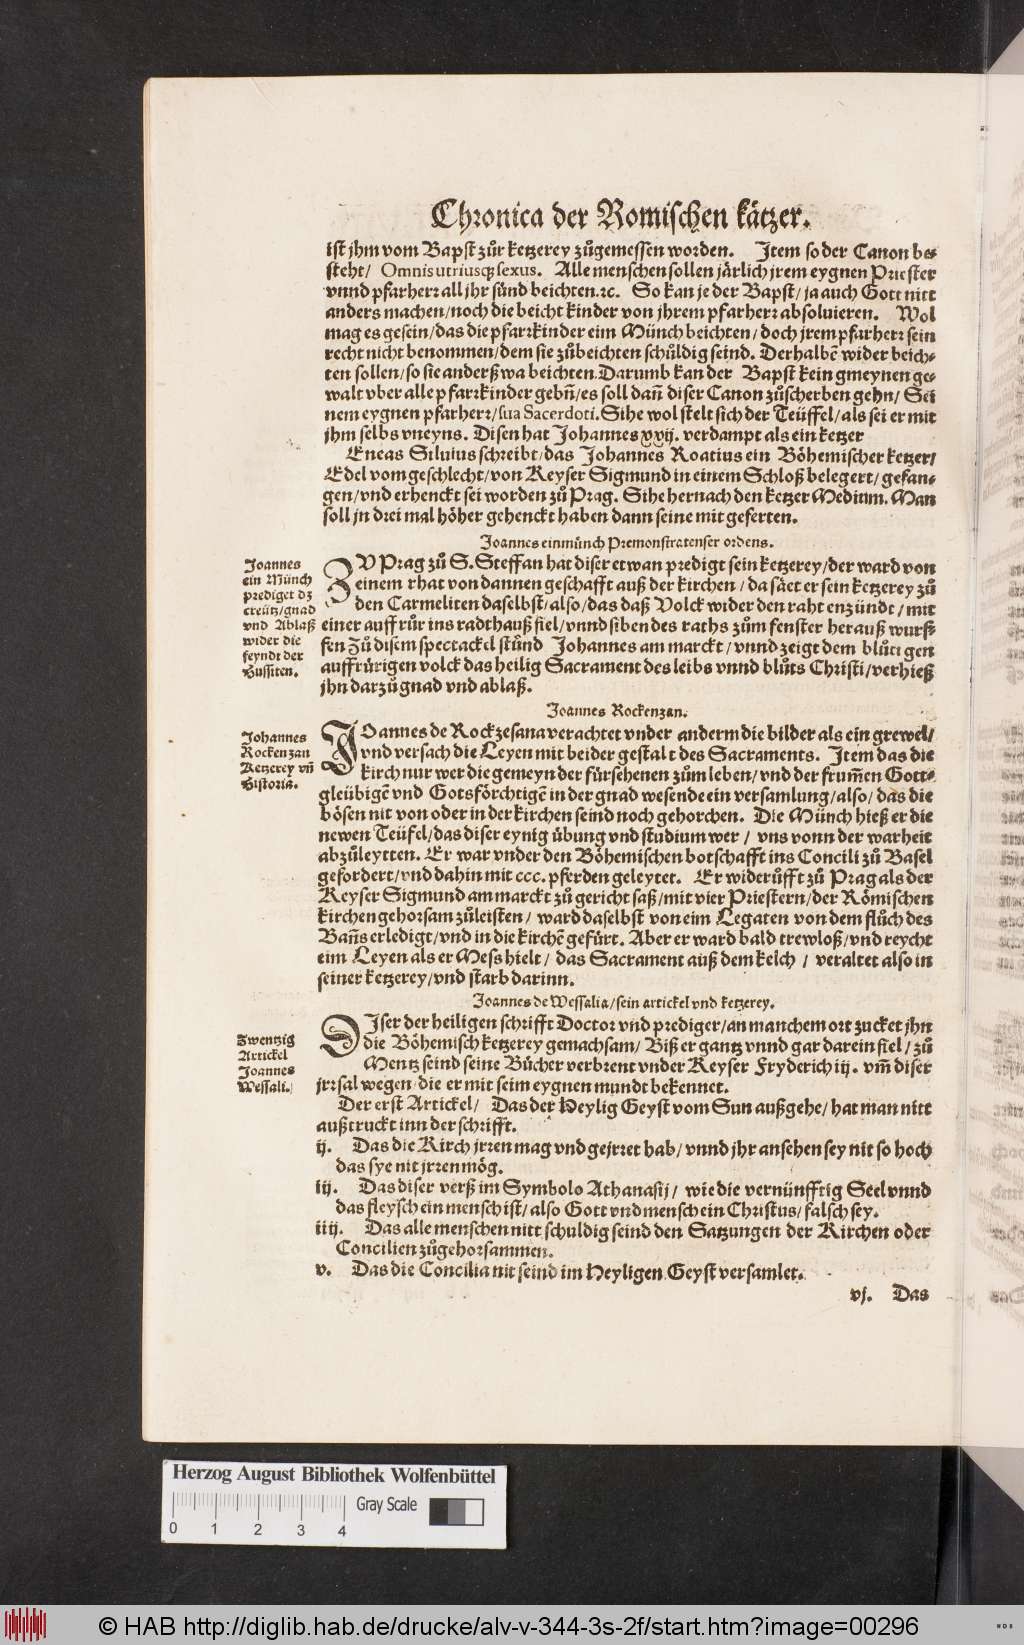 Chronica der Romischen kätzer.
ist jhm vom Bapst zůr ketzerey zůgemessen worden. Item so der Canon be-
steht/ Omnis utriusq; sexus. Alle menschen sollen järlich jrem eygnen Priester
vnnd pfarherr all jhr sünd beichten.ꝛc. So kan je der Bapst/ ja auch Gott nitt
anders machen/noch die beicht kinder von jhrem pfarherr absoluieren. Wol
mag es gesein/das die pfarrkinder eim Münch beichten/ doch jrem pfarherr sein
recht nicht benommen/dem sie zůbeichten schuldig seind. Derhalbē wider beich-
ten sollen/so sie anderßwa beichten. Darumb kan der Bapst kein gmeynen ge-
walt vber alle pfarrkinder gebn̄/es soll dan̄ diser Canon zůscherben gehn/ Sei
nem eygnen pfarherr/sua Sacerdoti. Sihe wol stelt sich der Teüffel/als sei er mit
jhm selbs vneyns. Disen hat Johannes xxij. verdampt als ein ketzer
Eneas Siluius schreibt/das Johannes Roatius ein Böhemischer ketzer/
Edel vom geschlecht/von Keyser Sigmund in einem Schloß belegert/gefan-
gen/vnd erhenckt sei worden zů Prag. Sihe hernach den ketzer Medium. Man
soll jn drei mal höher gehenckt haben dann seine mitgeferten.
Joannes ein münch Premonstratenser ordens.
Joannes
ein Münch
prediget dz
creütz/gnad
vnd Ablaß
wider die
feyndt der
Hussiten.
ZV Prag zů S. Steffan hat diser etwan predigt sein ketzerey/der ward von
einem rhat von dannen geschafft auß der kirchen/ da säet er sein ketzerey zů
den Carmeliten daselbst/also/das daß Volck wider den raht enzündt/mit
einer auffrůr ins radthauß fiel/vnnd siben des raths zům fenster herauß wurf-
fen Zů disem spectackel stůnd Johannes am marckt/vnnd zeigt dem blůtigen
auffrürigen volck das heilig Sacrament des leibs vnnd blůts Christi/verhieß
jhn darzů gnad vnd ablaß.
Joannes Rockenzan.
Johannes
Rockenzan
Ketzerey vn̄
Historia.
JOannes de Rockzesana verachtet vnder anderm die bilder als ein grewel/
vnd versach die Leyen mit beider gestalt des Sacraments. Item das die
kirch nur wer die gemeyn der fürsehenen zům leben/vnd der frum̄en Gott-
gleübigē vnd Gotsförchtigē in der gnad wesende ein versamlung/also/das die
bösen nit von oder in der kirchen seind noch gehorchen. Die Münch hieß er die
newen Teüfel/das diser eynig übung vnd studium wer/ vns vonn der warheit
abzůleytten. Er war vnder den Böhemischen botschafft ins Concili zů Basel
gefordert/vnd dahin mit ccc. pferden geleytet. Er widerůfft zů Prag als der
Keyser Sigmund am marckt zů gericht saß/mit vier Priestern/der Römischen
kirchen gehorsam zůleisten/ ward daselbst von eim Legaten von dem flůch des
Ban̄s erledigt/vnd in die kirchē gefürt. Aber er ward bald trewloß/vnd reycht
eim Leyen als er Mess hielt/ das Sacrament auß dem kelch/ veraltet also in
seiner ketzerey/vnd starb darinn.
Joannes de Wessalia/sein artickel vnd ketzerey.
Twentzig
Artickel
Joannes
Wessali.
DIser der heiligen schrifft Doctor vnd prediger/an manchem ort zucket jhn
die Böhemisch ketzerey gemachsam/ Biß er gantz vnnd gar darein fiel/ zů
Mentz seind seine Bücher verbrent vnder Keyser Fryderich iij. vm̄ diser
jrrsal wegen/die er mit seim eygnen mundt bekennet.
Der erst Artickel/ Das der Heylig Geyst vom Sun außgehe/ hat man nitt
außtruckt inn der schrifft.
ij. Das die Kirch jrren mag vnd gejrret hab/vnnd jhr ansehen sey nit so hoch
das sye nit jrren mög.
iij. Das diser verß im Symbolo Athanasij/ wie die vernünfftig Seel vnnd
das fleysch ein mensch ist/also Gott vnd mensch ein Christus/falsch sey.
iiij. Das alle menschen nitt schuldig seind den Satzungen der Kirchen oder
Concilien zůgehorsammen.
v. Das die Concilia nit seind im Heyligen Geyst versamlet.
vj. Das
Herzog August Bibliothek Wolfenbüttel
Gray Scale
0 1 2 3 4
© HAB http://diglib.hab.de/drucke/alv-v-344-3s-2f/start.htm?image=00296